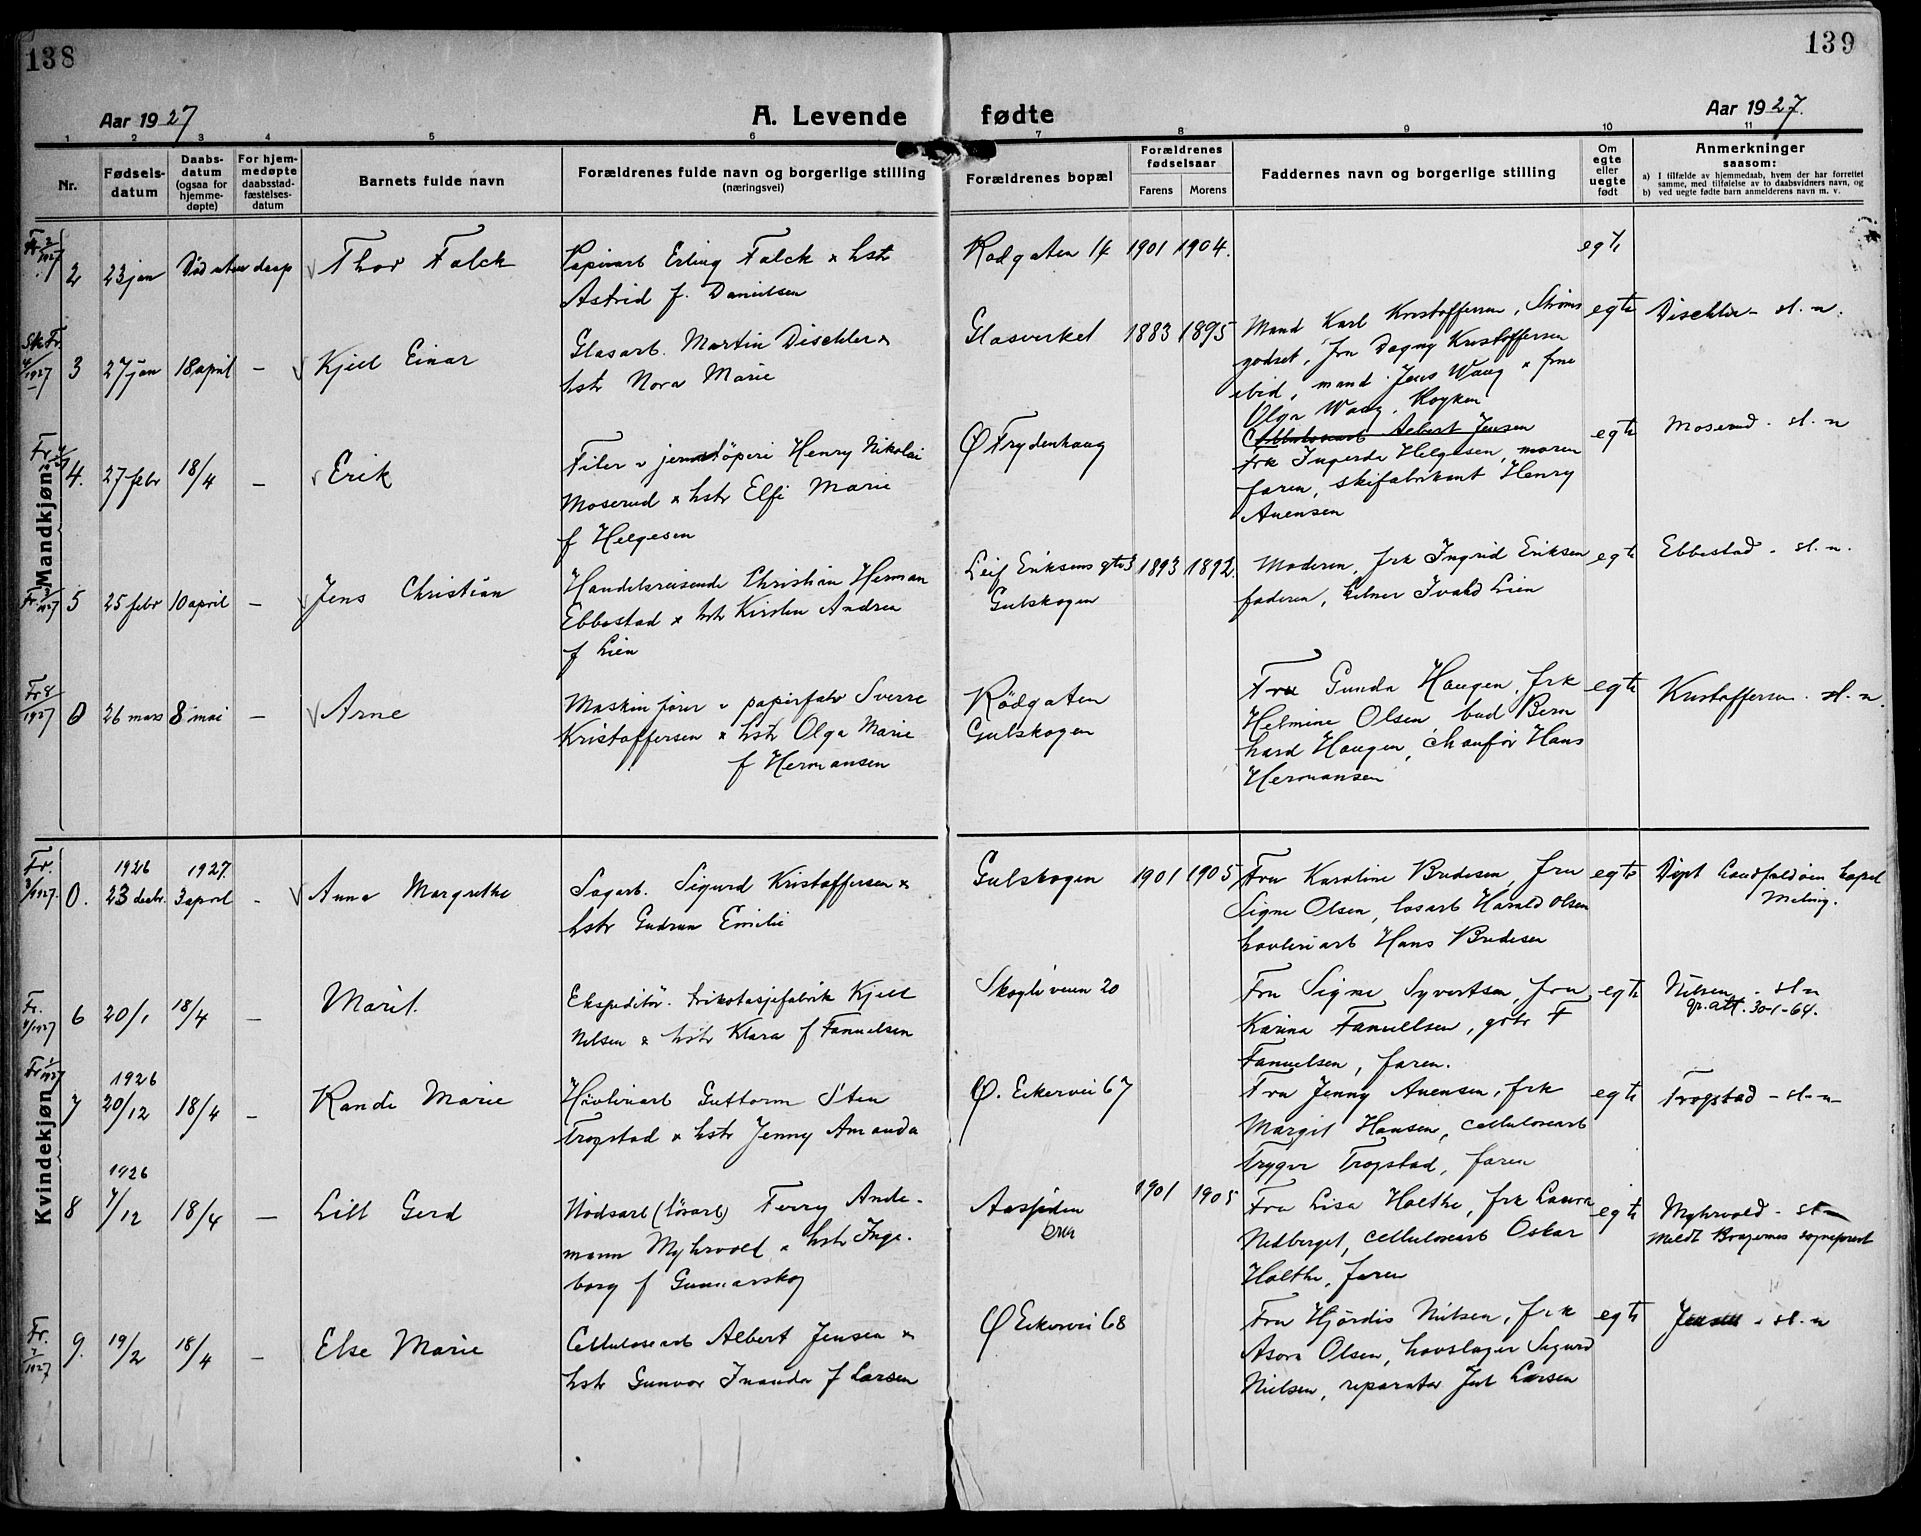 138
139
Aar 1927
A. Levende fødte
Aar 1927.
1 2 3 4 5 6 7 8 9 10 11
Nr.
Fødsels-
datum
Daabs-
datum
(ogsaa for
hjemme-
døpte)
For hjem-
medøpte
daabsstad-
fæstelses-
datum
Barnets fulde navn
Forældrenes fulde navn og borgerlige stilling
(næringsvei)
Forældrenes bopæl
Forældrenes
fødselsaar
Farens
Morens
Faddernes navn og borgerlige stilling
Om
egte
eller
uegte
født
Anmerkninger
saasom:
a) I tilfælde av hjemmedaab, hvem der har forrettet
samme, med tilføielse av to daabsvidners navn, og
b) ved uegte fødte barn anmelderens navn m. v.
Mandkjøn
2 23 jan Död uten daap Thor Falck
Papirarb Erling Falck & hstr
Astrid f. Danielsen
Rødgaten 14 1901 1904.
egte
3 27 jan 18 april – Kjell Einar
Glasarb. Martin Dischler &
hstr Nora Marie
Glasverket 1883 1895
Mand Karl Kristoffersen, Ströms
godset, fru Dagny Kristoffersen
ibid, mand Jens Waag & frue
Olga Waag, Røyken
egte
Dischler – sl. n.
4. 27 febr 18/4 – Erik
Filer v jernstöperi Henry Nikolai
Moserud & hstr Elfi Marie
f Helgesen
Ø Frydenhaug
Cellulosearb Albert Jensen
Frk Ingerda Helgesen, moren
faren, skifabrikant Henry
Auensen
egte
Moserud – sl. n
5 25 febr 10 april – Jens Christian
Handelsreisende Christian Herman
Ebbestad & hstr Kirsten Andrea
f Lien
Leif Eriksens gte 3
Gulskogen
1893 1892.
Moderen, frk Ingrid Eriksen
faderen, kelner Ivald Lien
egte
Ebbestad – sl. n.
0 26 mars 8 mai – Arne
Maskinfører v papirfabr Sverre
Kristoffersen & hstr Olga Marie
f Hermansen
Rödgaten
Gulskogen
Fru Gunda Haugen, frk
Helmine Olsen, bud Bern
hard Haugen, chauför Hans
Hermansen
egte
Kristoffersen – sl. n.
Kvindekjøn
1926 1927.
0. 23 decbr. 3 april – Anna Margrethe
Sagarb. Sigurd Kristoffersen &
hstr Gudrun Emilie
Gulskogen 1901 1905
Fru Karoline Brudesen, fru
Signe Olsen, losarb Harald Olsen
hövleriarb Hans Brudesen
egte
Döpt Landfaldöien kapel
Meling.
6 20/1 18/4 – Marit.
Ekspeditör. trikotasjefabrik Kjell
Nilsen & hstr Klara f Fanuelsen
Skogliveien 20
Fru Signe Syvertsen, fru
Karina Fanuellsen, gbr F
Fanuelsen, faren.
egte
Nilsen – sl. n
gr. att. 30-1-64.
1926
7 20/12 18/4 – Randi Marie
Hövleriarb Guttorm Sten
Trogstad & hstr Jenny Amanda
Ø. Eikervei 67
Fru Jenny Auensen, frk
Margit Hansen, cellulosearb
Trygve Trogstad, faren
egte
Trogstad – sl. n –
1926
8 7/12 18/4 – Lill Gerd
Nödsarb (lösarb) Ferry Ande-
mann Myhrvold & hstr Inge-
borg f Gunnarskog
Aassiden
1901 1905
Fru Lisa Holthe, frk Laura
Nedberget, cellulosearb Oskar
Holthe, faren
egte
Myhrvold – sl n
meldt Bragernes sogneprest
9. 19/2 18/4 – Else Marie
Cellulosearb Albert Jensen &
hstr Gunvor Inanda f Larsen
Ø Eikervei 68
Fru Hjördis Nielsen, frk
Asora Olsen, hovslager Sigurd
Nielsen, reparatör Jul Larsen
egte
Jensen – sl. n